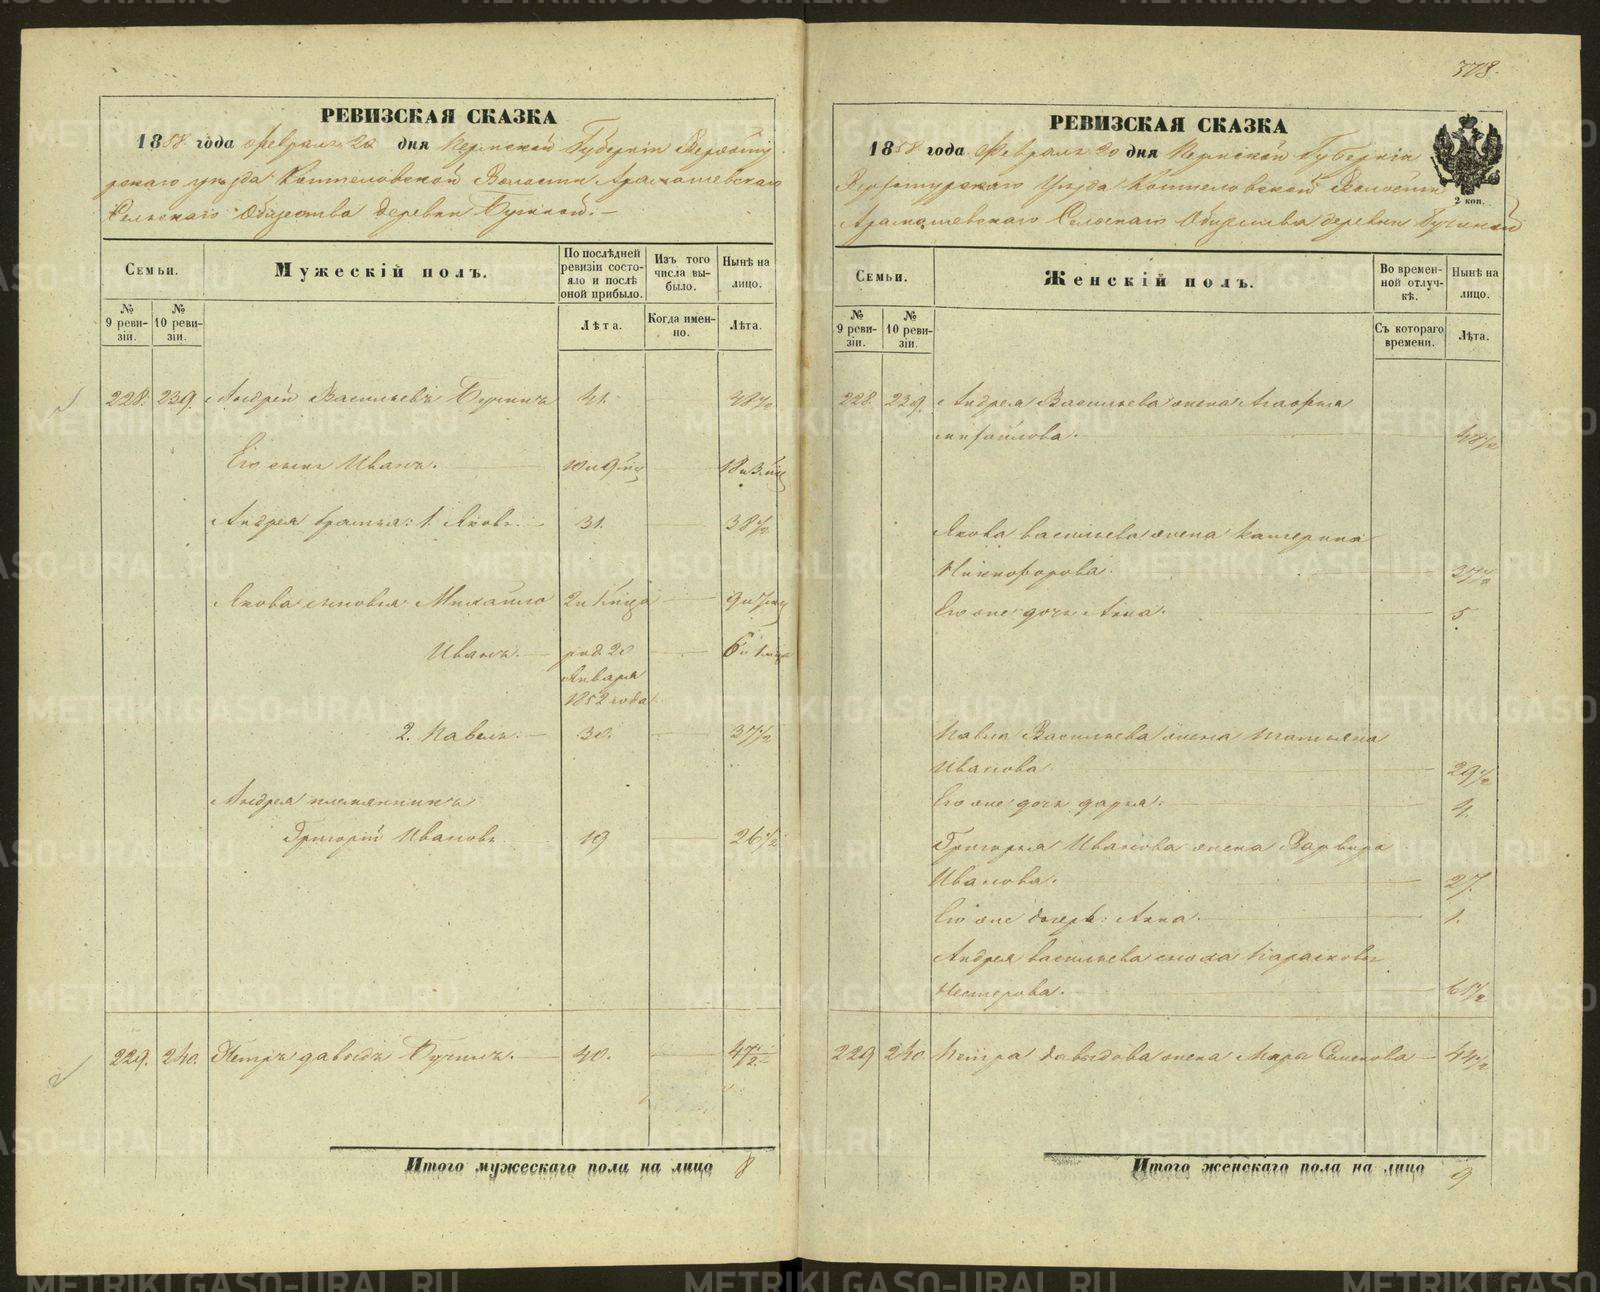 378.
РЕВИЗСКАЯ СКАЗКА
1858 года Февраля 20 дня Пермской Губерніи Верхоту
рскаго уѣзда Коптеловской Волости Арамашевскаго
Сельскаго Общества деревни Бучиной.
Семьи.
Мужескій полъ.
По послѣдней ревизіи состояло и послѣ оной прибыло.
Изъ того числа выбыло.
Нынѣ на лицо.
№ 9 ревизіи.
№ 10 ревизіи.
Лѣта.
Когда именно.
Лѣта.
228. 239. Андрей Васильевъ Бучинъ 41. 48½
Его сынъ Иванъ. 10 и 9 мц 18 и 3 мц
Андрея братья: 1. Яковъ. 31. 38½
Якова сыновья Михайло 2 и 1 мца 9 и 7 мц
Иванъ. род. 20 6 и 1 мца
Января
1852 года
2. Павелъ. 30. 37½
Андрея племянникъ
Григорій Ивановъ. 19 26½
229. 240. Петръ Давыдъ Бучинъ. 40. 47½
Итого мужескаго пола на лицо 8
РЕВИЗСКАЯ СКАЗКА
1858 года Февраля 20 дня Пермской Губерніи
Верхотурскаго Уѣзда Коптеловской Волости
Арамашевскаго Сельскаго Общества деревни Бучиной
2 коп.
Семьи.
Женскій полъ.
Во временной отлучкѣ.
Нынѣ на лицо.
№ 9 ревизіи.
№ 10 ревизіи.
Съ котораго времени.
Лѣта.
228. 239. Андрея Васильева жена Агафья
михайлова. 48½
Якова васильева жена Катерина
Никифорова. 37½
Его же дочь Анна. 5
Павла Васильева жена татьяна
Иванова. 29½
Его же дочь дарья. 4.
Григорья Иванова жена Варвара
Иванова. 27.
Его же дочерь: Анна. 1.
Андрея васильева сноха Парасковья
Нестерова. 61½
229 240 Петра Давыдова жена Марья Семенова 44½
Итого женскаго пола на лицо 9
METRIKI.GASO-URAL.RU